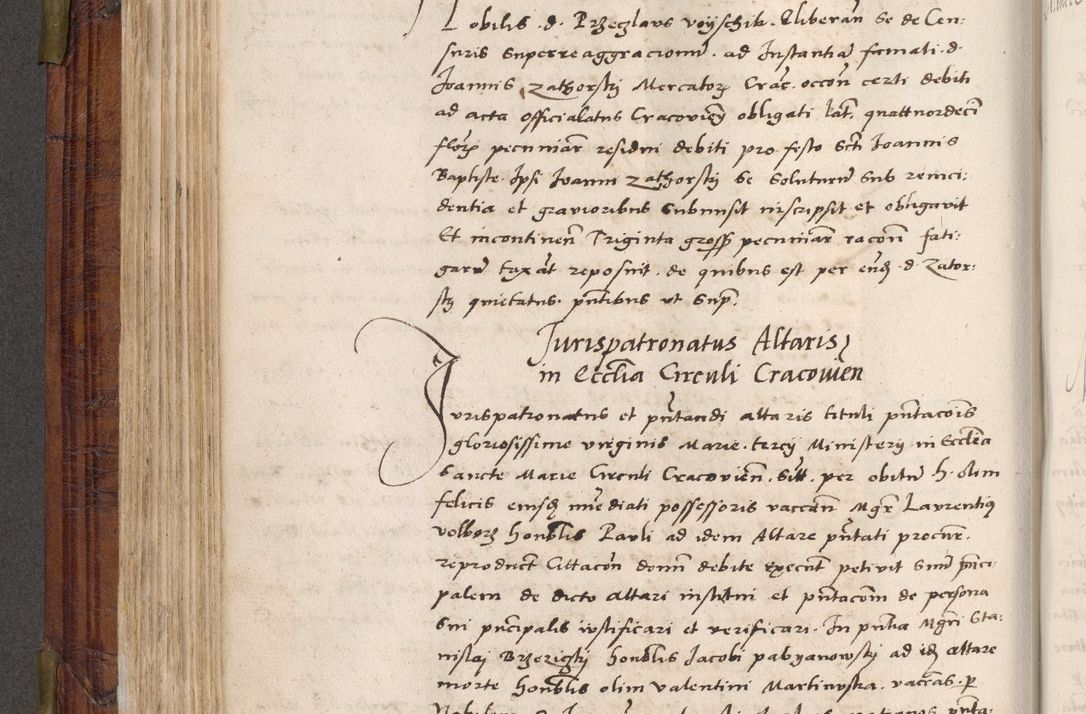 Nobilis d. Przeczlaus voyschik. Eliberan̄ se de Cen:
suris superreaggracionū. ad Instantiā fcmati. d.
Joannis zathorskj Mercatorꝫ Crac̄. occon̄ certi debiti
ad acta officialatus Cracovien̄ obligati lat̄. quattuordeci
florꝫ pecuniar̄ residui debiti pro festo Scti Joannis
Baptiste Ipsi Joanni zathorskj se soluturū sub reinci:
dentia et gravioribus submisit inscripsit et obligavit
Et incontinen̄ Triginta gross pecuniar̄ racon̄ fati:
garū taxat reposuit. de quibus est per eundꝫ d. Zator:
skj quietatus. pn̄tibus ut sup̄.
Jurispatronatus Altaris
in Ecclīa Circuli Cracovien
Jurispatronatus et pn̄tandi altaris tituli pn̄tacōis
gloriosissime virginis Marie. tercij Ministerij in Ecclīa
Sancte Marie Circuli Cracovien̄. sitt. per obitū h. olim
felicis eiusdꝫ īmediati possessoris vaccan̄ Mgr̄ Laurentiꝰ
volborꝫ honblis Pauli ad idem Altare pn̄tati procur̄.
reproduct Cittacōn̄ domn̄ debite execut petivit suū p̄nci:
palem de dicto altari institui et pn̄tacōm de persona
sui principalis iustificari et verificari. In pn̄tia Mgrī Sta:
nislaj Brzeziczkj honblis Jacobi pabyanowskj ad idꝫ altare
morte honblis olim valentini Martinwska. vaccās. p̄